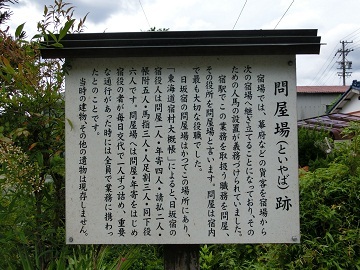 問屋場（といやば）跡
宿場では、幕府などの貨客を宿場から
次の宿場へ継ぎ立てることになっており、その
ための人馬の設置が義務づけられていました。
宿駅でこの業務を取扱う職務を問屋、
その役所を問屋場と言います。問屋は宿内
で最も大切な役職でした。
日坂宿の問屋場はかつてこの場所にあり、
「東海道宿村大概帳」によると、日坂宿の
宿役人は問屋一人・年寄四人・請払二人・
帳附五人・馬指三人・人足割三人・同下役
六人です。問屋場へは問屋・年寄をはじめ
宿役の者が毎日交代で一人ずつ詰め、重要
な通行があった時には全員で業務に携わっ
たとのことです。
当時の建物、その他の遺物は現存しません。